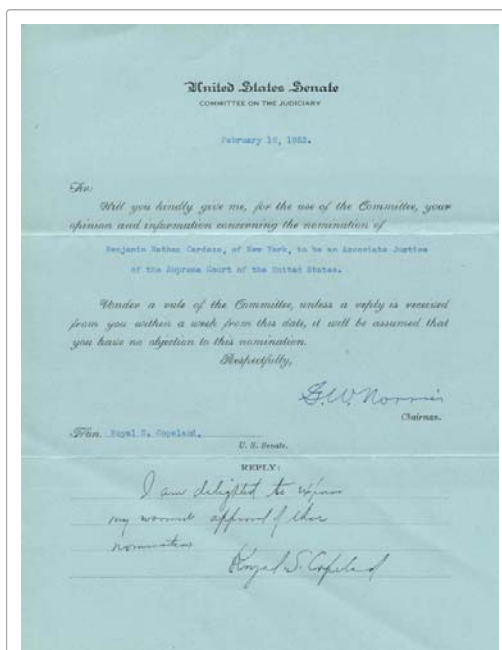 United States Senate
COMMITTEE ON THE JUDICIARY
February 16, 1932.
Sir:
Will you kindly give me, for the use of the Committee, your
opinion and information concerning the nomination of
Benjamin Nathan Cardozo, of New York, to be an Associate Justice
of the Supreme Court of the United States.
Under a rule of the Committee, unless a reply is received
from you within a week from this date, it will be assumed that
you have no objection to this nomination.
Respectfully,
G.W. Norris
Chairman.
To Hon. Royal S. Copeland,
U. S. Senate.
REPLY:
I am delighted to express
my warmest approval of this
nomination
Royal S. Copeland